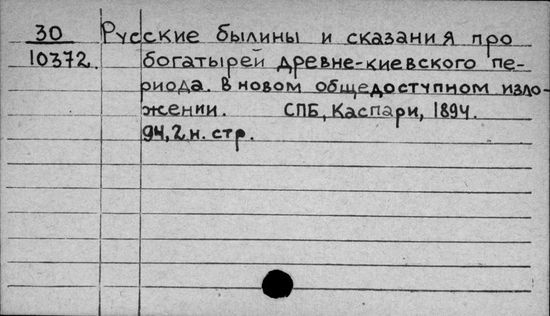 30 Русские былины и сказания про
10372. богатырей древне-киевского пе-
риода. В новом общедоступном изло-
жении. СПБ, Каспари, 1894.
94, 2 н. стр.